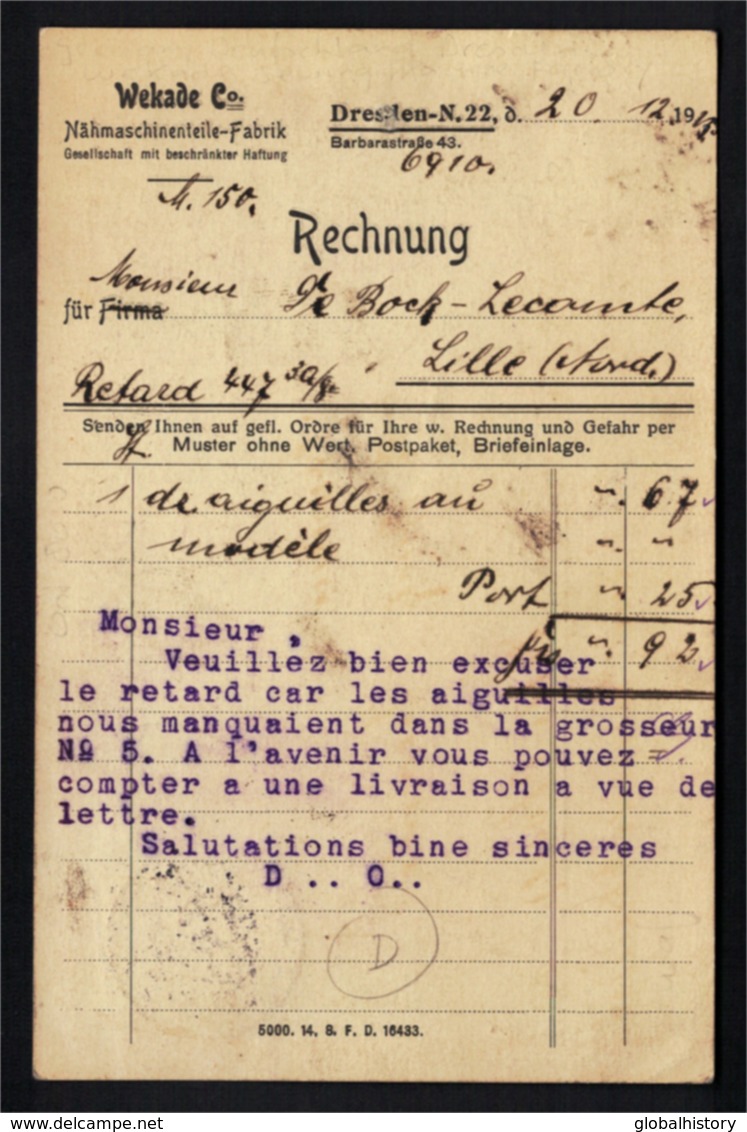 Wekade Co.
Nähmaschinenteile-Fabrik
Gesellschaft mit beschränkter Haftung
Dresden-N. 22, d. 20. 12. 191
Barbarastraße 43.
6910.
M. 150.
Rechnung
Monsieur
für Firma De Bock-Lecomte,
Lille (Nord.)
Retard 447
Senden Ihnen auf gefl. Ordre für Ihre w. Rechnung und Gefahr per
Muster ohne Wert, Postpaket, Briefeinlage.
1 dz. aiguilles au ". 67
modèle " "
Port " 25
". 92
Monsieur ,
Veuillez bien excuser
le retard car les aiguilles
nous manquaient dans la grosseur
№ 5. A l'avenir vous pouvez =
compter a une livraison a vue de
lettre.
Salutations bine sinceres
D .. O..
D
5000. 14. 8. F. D. 16433.
www.delcampe.net
globalhistory